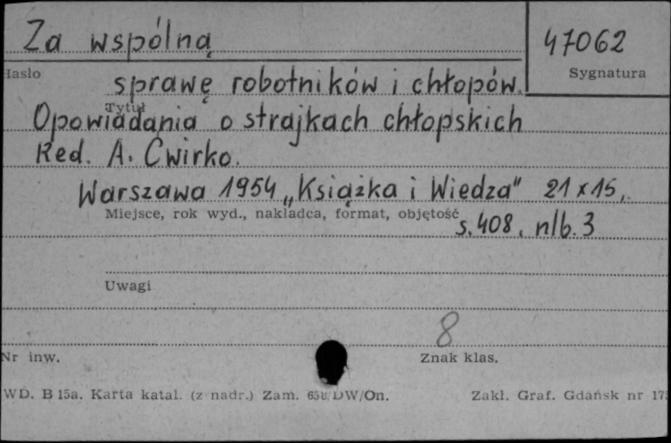 Za wspólną
47062
Hasło
Sygnatura
sprawę robotników i chłopów.
Tytuł
Opowiadania o strajkach chłopskich
Red. A. Ćwirko.
Warszawa 1954 „Książka i Wiedza" 21 x 15,
Miejsce, rok wyd., nakładca, format, objętość
s. 408, nlb. 3
Uwagi
8
Nr inw.
Znak klas.
WD. B 15a. Karta katal. (z nadr.) Zam. DW/On.
Zakł. Graf. Gdańsk nr